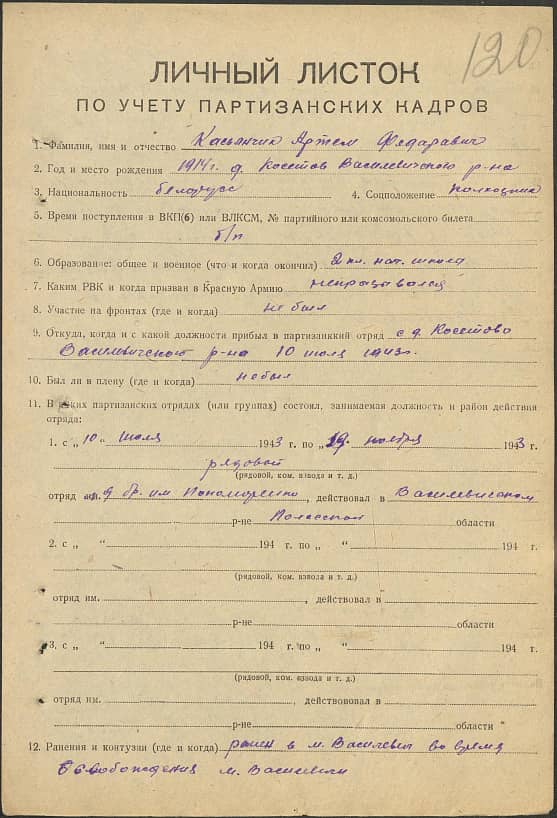 120
ЛИЧНЫЙ ЛИСТОК
ПО УЧЕТУ ПАРТИЗАНСКИХ КАДРОВ
1. Фамилия, имя и отчество Касьянчик Артем Федаравич
2. Год и место рождения 1914 г. д. Косетов Василевичского р-на
3. Национальность белорусс 4. Соцположение колхозник
5. Время поступления в ВКП(б) или ВЛКСМ, № партийного или комсомольского билета
б/п
6. Образование: общее и военное (что и когда окончил) 2 кл. нач. школа
7. Каким РВК и когда призван в Красную Армию непризывался
8. Участие на фронтах (где и когда) не был
9. Откуда, когда и с какой должности прибыл в партизанккий отряд с д. Косетово
Василевичского р-на 10 июля 1943 г.
10. Был ли в плену (где и когда) небыл
11. В каких партизанских отрядах (или группах) состоял, занимаемая должность и район действия
отряда:
1. с „ 10 “ Июля 1943 г. по „ 19 “ ноября 1943 г.
рядовой
(рядовой, ком. взвода и т. д.)
отряд бр. им Пономаренко, действовал в Василевиском
р-не Полесской области
2. с „ “ 194 г. по „ “ 194 г.
(рядовой, ком. взвода и т. д.)
отряд им. , действовал в
р-не области
3. с „ “ 194 г. по „ “ 194 г.
(рядовой, ком. взвода и т. д.)
отряд им. , действововал в
р-не области
12. Ранения и контузии (где и когда) ранен в м. Василевичи во время
освобождения м. Василевичи